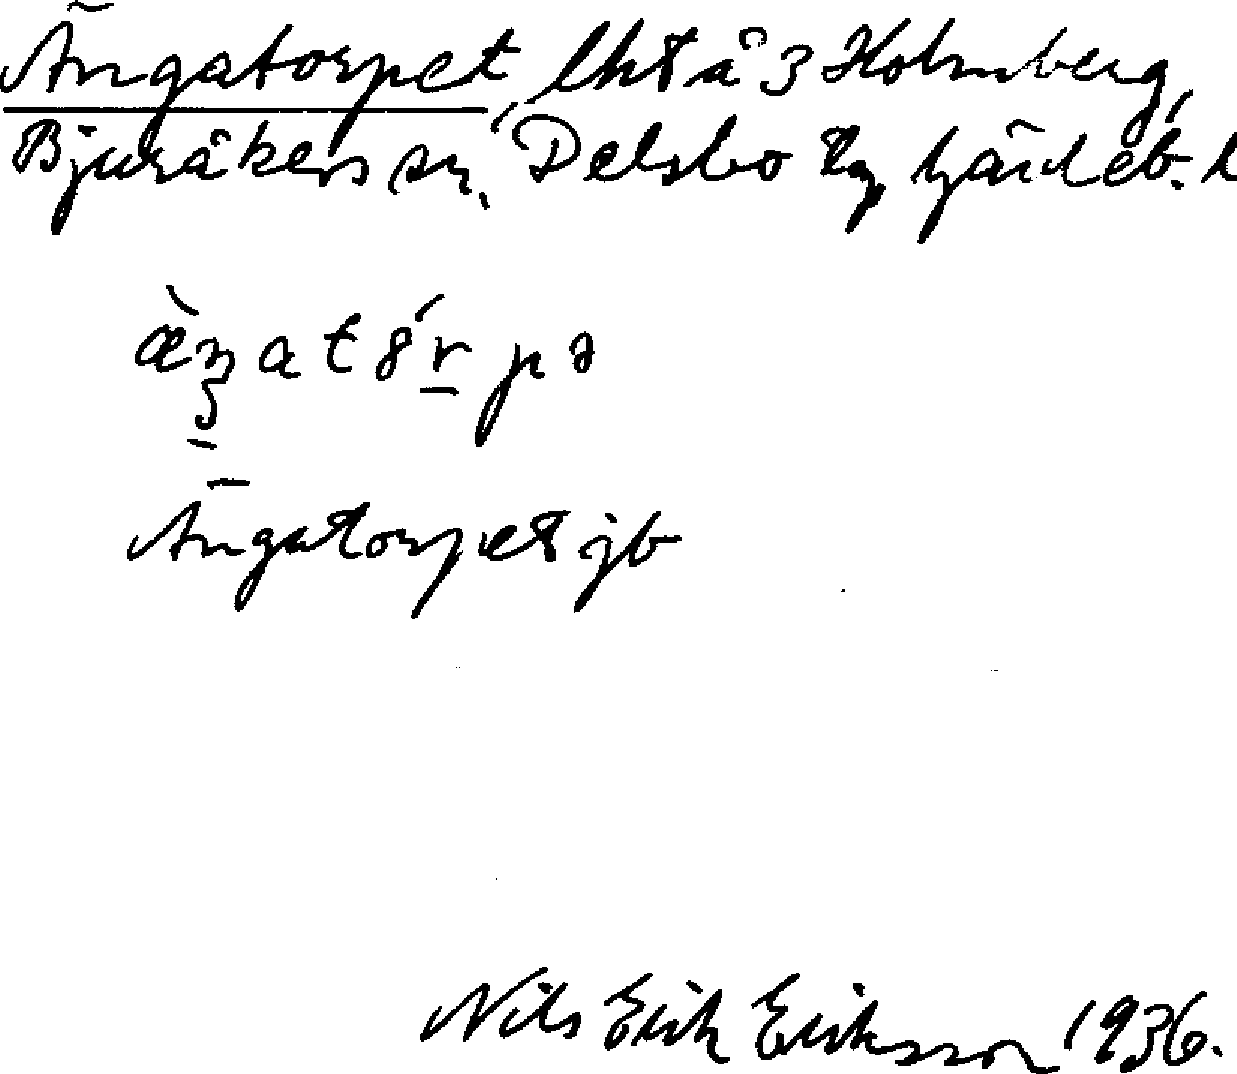 Ängatorpet, lht å 3 Holmberg,
Bjuråkers sn, Delsbo tg, Gävleb. l
Ängatorpet jb
Nils Erik Eriksson 1936.